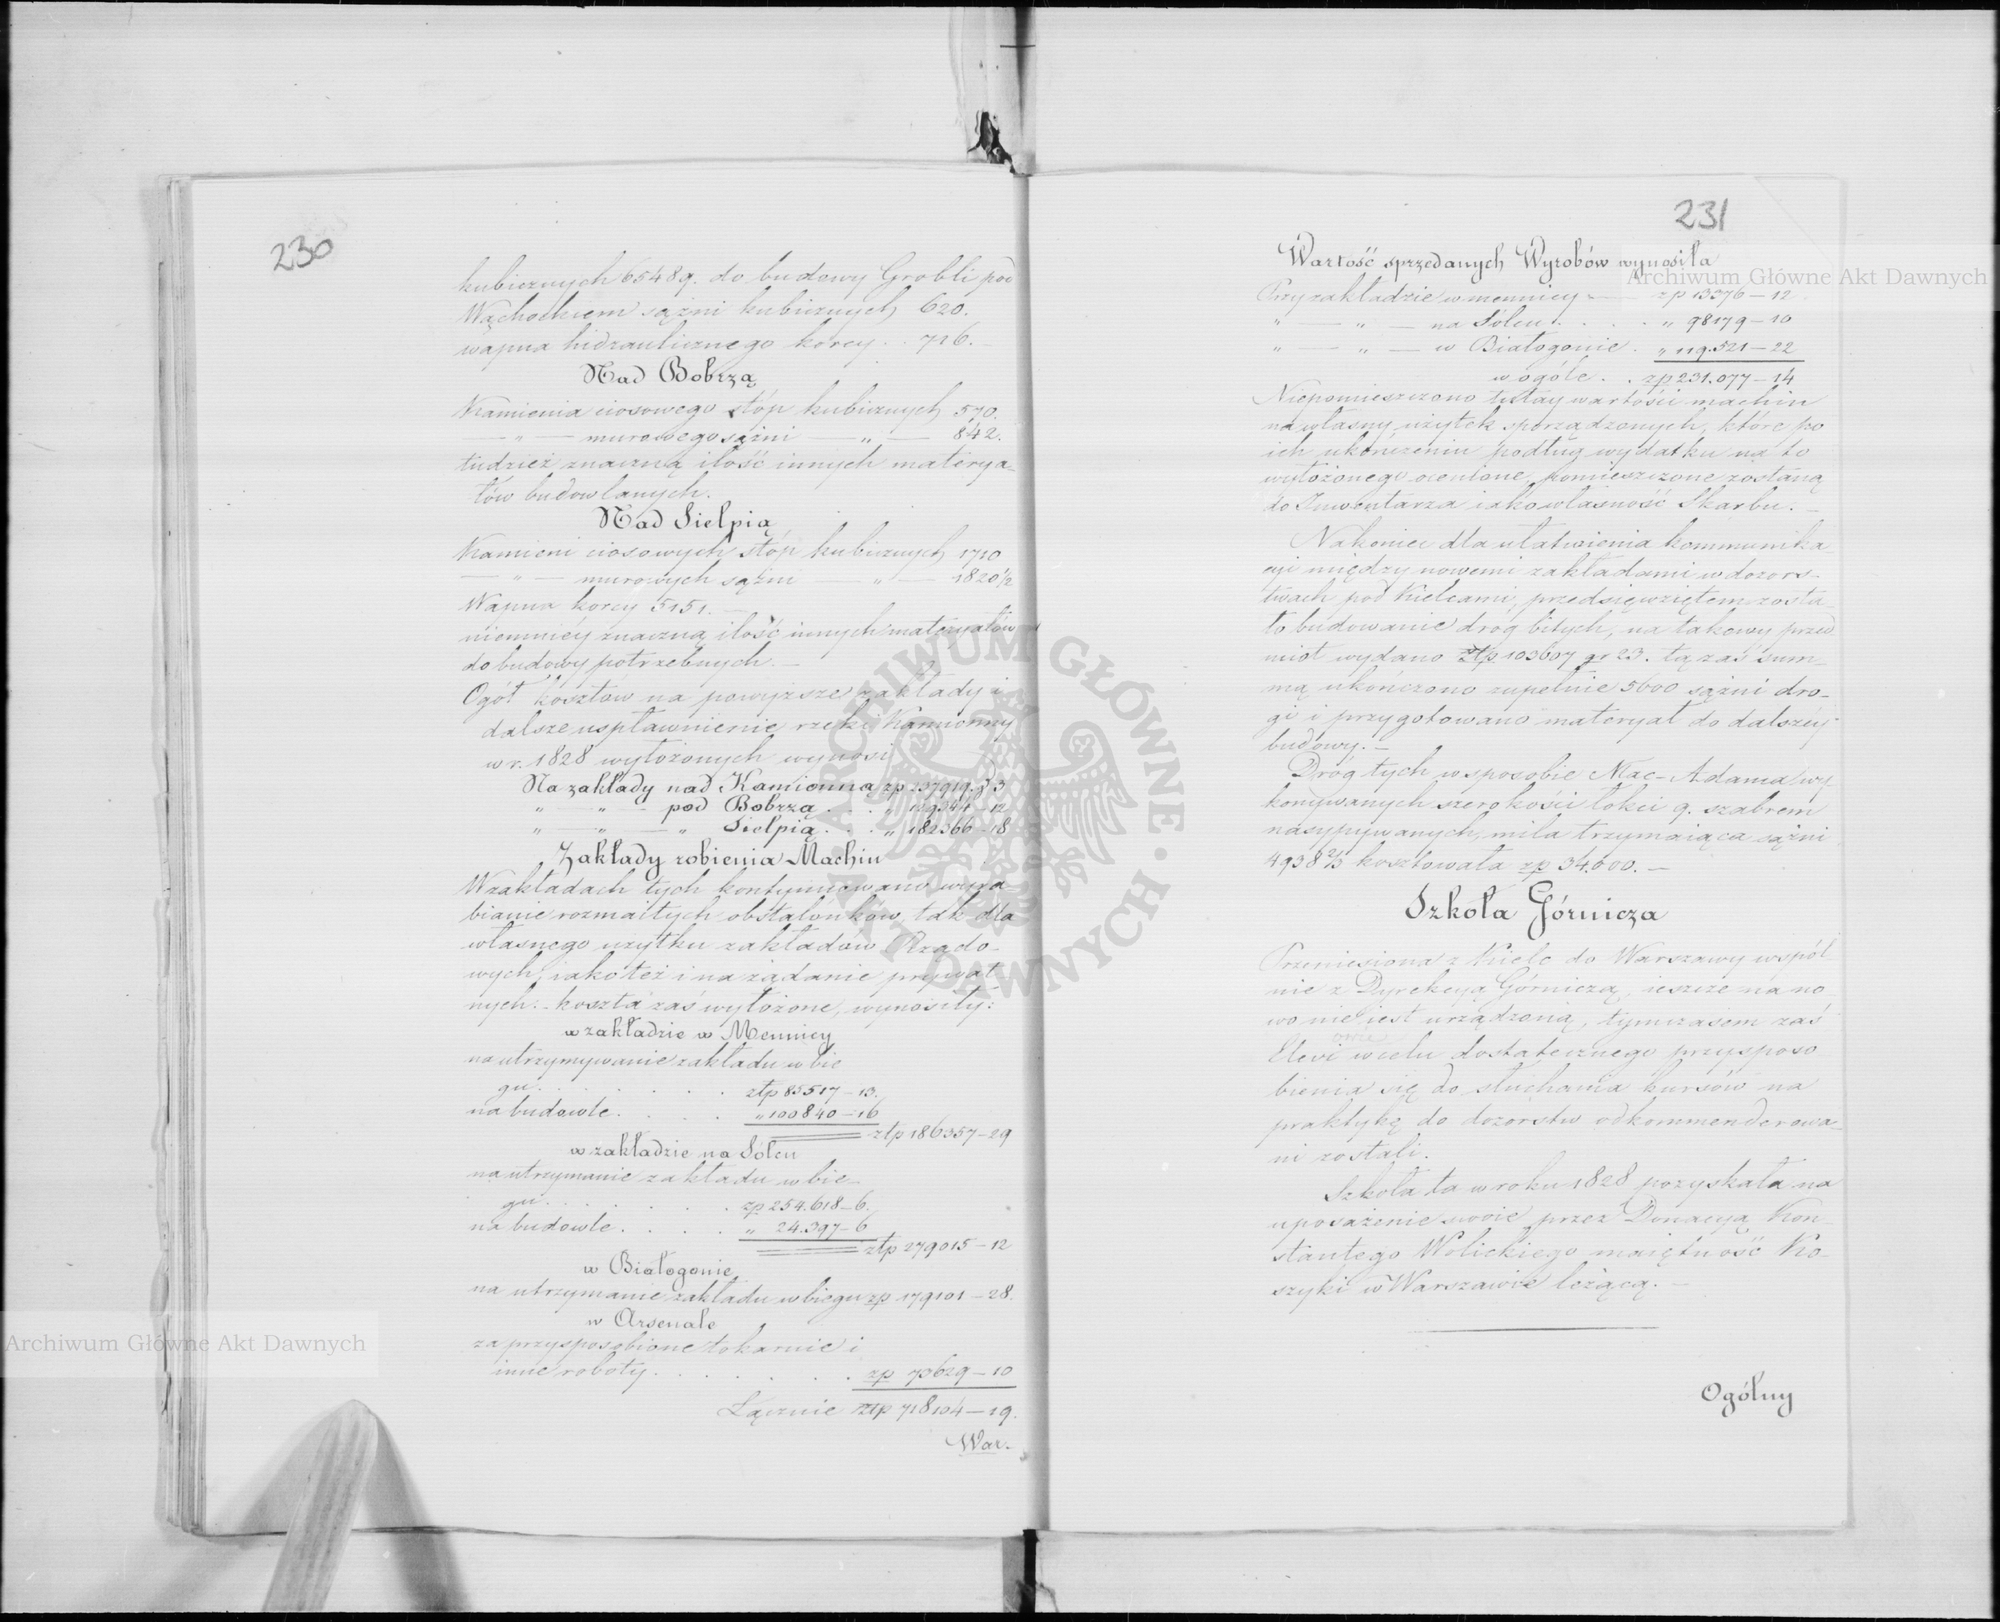 230
kubicznych 65489. do budowy Grobli pod
Wąchockiem sążni kubicznych 620.
wapna hidraulicznego korcy . . 716.
Nad Bobrzą
Kamienia ciosowego stóp kubicznych 570.
— „ — murowego sążni — „ — 842.
tudzież znaczną ilość innych materya-
łów budowlanych.
Nad Sielpią
Kamieni ciosowych stóp kubicznych 1710
— „ — murowych sążni — „ — 1820 1/2
Wapna korcy 5151. —
niemniéy znaczną ilość innych materyałów
do budowy potrzebnych. —
Ogół kosztów na powyższe zakłady i
dalsze uspławnienie rzeki Kamionny
w r. 1828 wyłożonych wynosi
Na zakłady nad Kamionną zp 237919. 3
„ — „ — pod Bobrzą . . „ 129344 — 12
„ — „ — „ Sielpią . . . „ 182366 — 18
Zakłady robienia Machin
W zakładach tych kontynuowano wyra-
bianie rozmaitych obstalunków, tak dla
własnego użytku zakładów Rządo-
wych, iako też i na żądanie prywat-
nych. - koszta zaś wyłożone, wynosiły:
w zakładzie w Mennicy
na utrzymywanie zakładu w bie
gu . . . . . . złp 85517 — 13.
na budowle . . . . „ 100840 — 16
złp 186357 — 29
w zakładzie na Solcu
na utrzymanie zakładu w bie-
gu . . . . . . zp 254.618 — 6.
na budowle . . . . „ 24.397 — 6
złp 279015 — 12
w Białogonie
na utrzymanie zakładu w biegu zp 179101 — 28.
w Arsenale
za przysposobione tokarnie i
inne roboty . . . . . . . zp 73629 — 10
Łącznie złp 718104 — 19.
War-
231
Wartość sprzedanych Wyrobów wynosiła
Przy zakładzie w mennicy - zp 13376 — 12.
„ — „ — na Solcu . . . . „ 98179 — 10
„ — „ — w Białogonie . „ 119.521 — 22
w ogóle . . zp 231.077 — 14
Niepomieszczono tutay wartości machin
na własny użytek sporządzonych, które po
ich ukończeniu podług wydatku na to
wyłożonego ocenione, pomieszczone zostaną
do Inwentarza iako własność Skarbu. —
Nakoniec dla ułatwienia kommunika-
cyi między nowemi zakładami w dozors-
twach pod Kielcami, przedsięwziętem zosta-
ło budowanie dróg bitych, na takowy przed
miot wydano złp 103607 gr 23. tą zaś sum-
mą ukończono zupełnie 5600 sążni dro-
gi i przygotowano materyał do dalszéy
budowy. —
Dróg tych w sposobie Mac-Adama wy-
konywanych szerokości łokci 9. szabrem
nasypywanych, mila trzymaiąca sążni
4938 2/3 kosztowała zp 34.600. —
Szkoła Górnicza
Przeniesiona z Kielc do Warszawy wspól-
nie z Dyrekcyą Górniczą, ieszcze na no-
wo nie iest urządzoną, tymczasem zaś
Elewi w celu dostatecznego przysposo
bienia się do słuchania kursów na
praktykę do dozorstw odkommenderowa-
ni zostali.
Szkoła ta w roku 1828 pozyskała na
uposażenie swoie przez Donacyą Kon-
stantego Wolickiego maiętność Ko-
szyki w Warszawie leżącą. —
Ogólny
Archiwum Główne Akt Dawnych
Archiwum Główne Akt Dawnych
ARCHIWUM GŁÓWNE AKT DAWNYCH